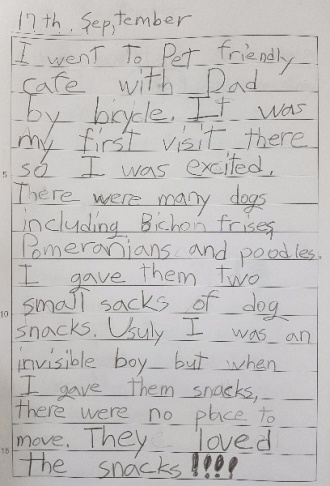 17th, September
I went To Pet friendly
cafe with Dad
by bicycle. It was
my first visit there
so I was excited.
5
There were many dogs
including Bichon frises,
Pomeranians and poodles.
I gave them two
small sacks of dog
10
snacks. Usuly I was an
invisible boy but when
I gave them snacks,
there were no place to
move. They loved
15
the snacks!!!!